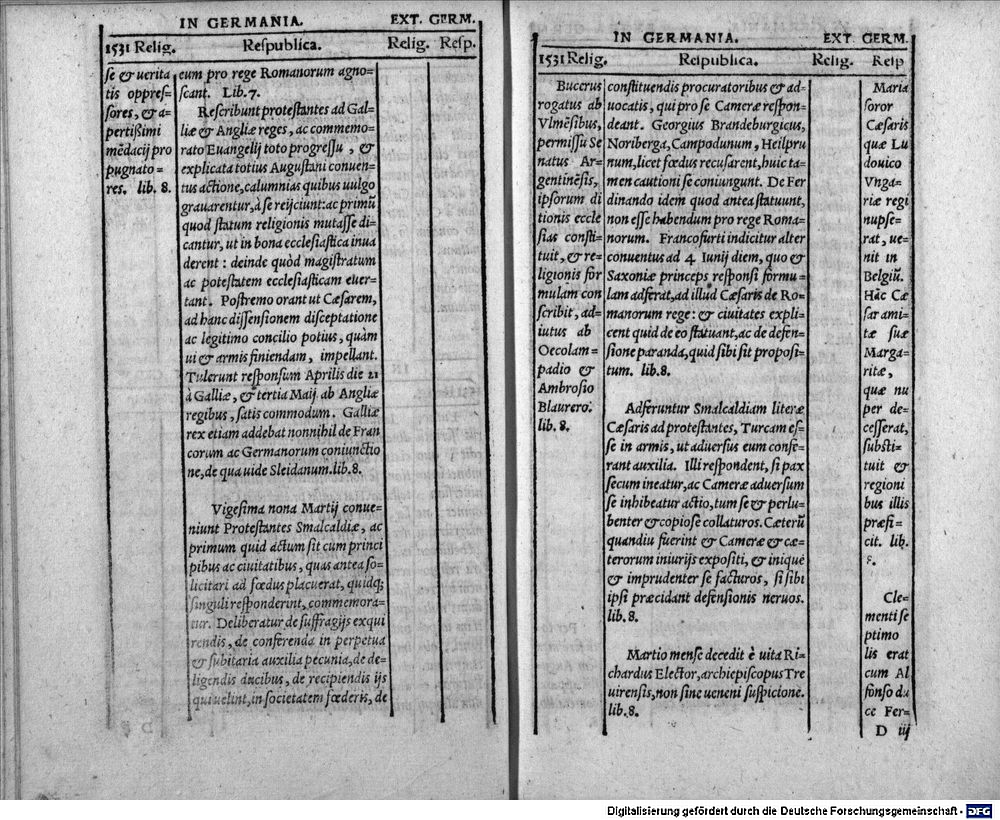 IN GERMANIA. EXT. GERM.
1531 Relig. Respublica. Relig. Resp.
se & uerita
tis oppres-
sores, & a-
pertißimi
mēdacij pro
pugnato-
res. lib. 8.
eum pro rege Romanorum agno-
scant. Lib. 7.
Rescribunt protestantes ad Gal-
liæ & Angliæ reges, ac commemo-
rato Euangelij toto progressu, &
explicata totius Augustani conuen-
tus actione, calumnias quibus uulgo
grauarentur, à se reijciunt: ac primū
quod statum religionis mutasse di-
cantur, ut in bona ecclesiastica inua
derent: deinde quòd magistratum
ac potestatem ecclesiasticam euer-
tant. Postremo orant ut Cæsarem,
ad hanc dissensionem disceptatione
ac legitimo concilio potius, quàm
ui & armis finiendam, impellant.
Tulerunt responsum Aprilis die 21
à Galliæ, & tertia Maij ab Angliæ
regibus, satis commodum. Galliæ
rex etiam addebat nonnihil de Fran
corum ac Germanorum coniunctio
ne, de qua uide Sleidanum. lib. 8.
Vigesima nona Martij conue-
niunt Protestantes Smalcaldiæ, ac
primum quid actum sit cum princi
pibus ac ciuitatibus, quas antea so-
licitari ad fœdus placuerat, quidq;
singuli responderint, commemora-
tur. Deliberatur de suffragijs exqui
rendis, de conferenda in perpetua
& subitaria auxilia pecunia, de de-
ligendis ducibus, de recipiendis ijs
qui uelint, in societatem fœderis, de
IN GERMANIA. EXT. GERM.
1531 Relig. Reipublica. Relig. Resp
Bucerus
rogatus ab
Vlmēsibus,
permissu Se
natus Ar-
gentinēsis,
ipsorum di
tionis eccle
sias consti-
tuit, & re-
ligionis for
mulam con
scribit, ad-
iutus ab
Oecolam-
padio &
Ambrosio
Blaurero.
lib. 8.
constituendis procuratoribus & ad-
uocatis, qui pro se Cameræ respon-
deant. Georgius Brandeburgicus,
Noriberga, Campodunum, Heilpru
num, licet fœdus recusarent, huic ta-
men cautioni se coniungunt. De Fer
dinando idem quod antea statuunt,
non esse habendum pro rege Roma-
norum. Francofurti indicitur alter
conuentus ad 4. Iunij diem, quo &
Saxoniæ princeps responsi formu-
lam adferat, ad illud Cæsaris de Ro-
manorum rege: & ciuitates expli-
cent quid de eo statuant, ac de defen-
sione paranda, quid sibi sit proposi-
tum. lib. 8.
Adferuntur Smalcaldiam literæ
Cæsaris ad protestantes, Turcam es-
se in armis, ut aduersus eum confe-
rant auxilia. Illi respondent, si pax
secum ineatur, ac Cameræ aduersum
se inhibeatur actio, tum se & perlu-
benter & copiose collaturos. Cæterū
quandiu fuerint & Cameræ & cæ-
terorum iniurijs expositi, & iniquè
& imprudenter se facturos, si sibi
ipsi præcidant defensionis neruos.
lib. 8.
Martio mense decedit è uita Ri-
chardus Elector, archiepiscopus Tre
uirensis, non sine ueneni suspicione.
lib. 8.
Maria
soror
Cæsaris
quæ Lu
douico
Vnga-
riæ regi
nupse-
rat, ue-
nit in
Belgiū.
Hāc Cæ
sar ami-
tæ suæ
Marga-
ritæ,
quæ nu
per de-
cesserat,
substi-
tuit &
regioni
bus illis
præfi-
cit. lib.
8.
Cle-
menti se
ptimo
lis erat
cum Al
fonso du
ce Fer-
D iij
Digitalisierung gefördert durch die Deutsche Forschungsgemeinschaft - DFG